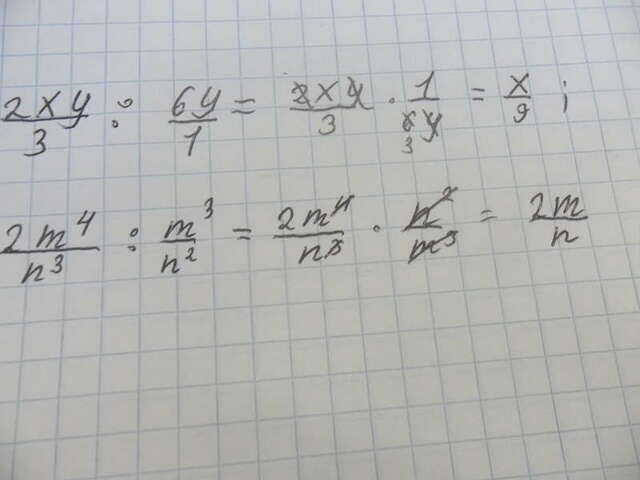 2xy/3 : 6y/1 = 2xy/3 · 1/6y 3 = x/9 ;
2m⁴/n³ : m³/n² = 2m⁴/n³ · n²/m³ = 2m/n